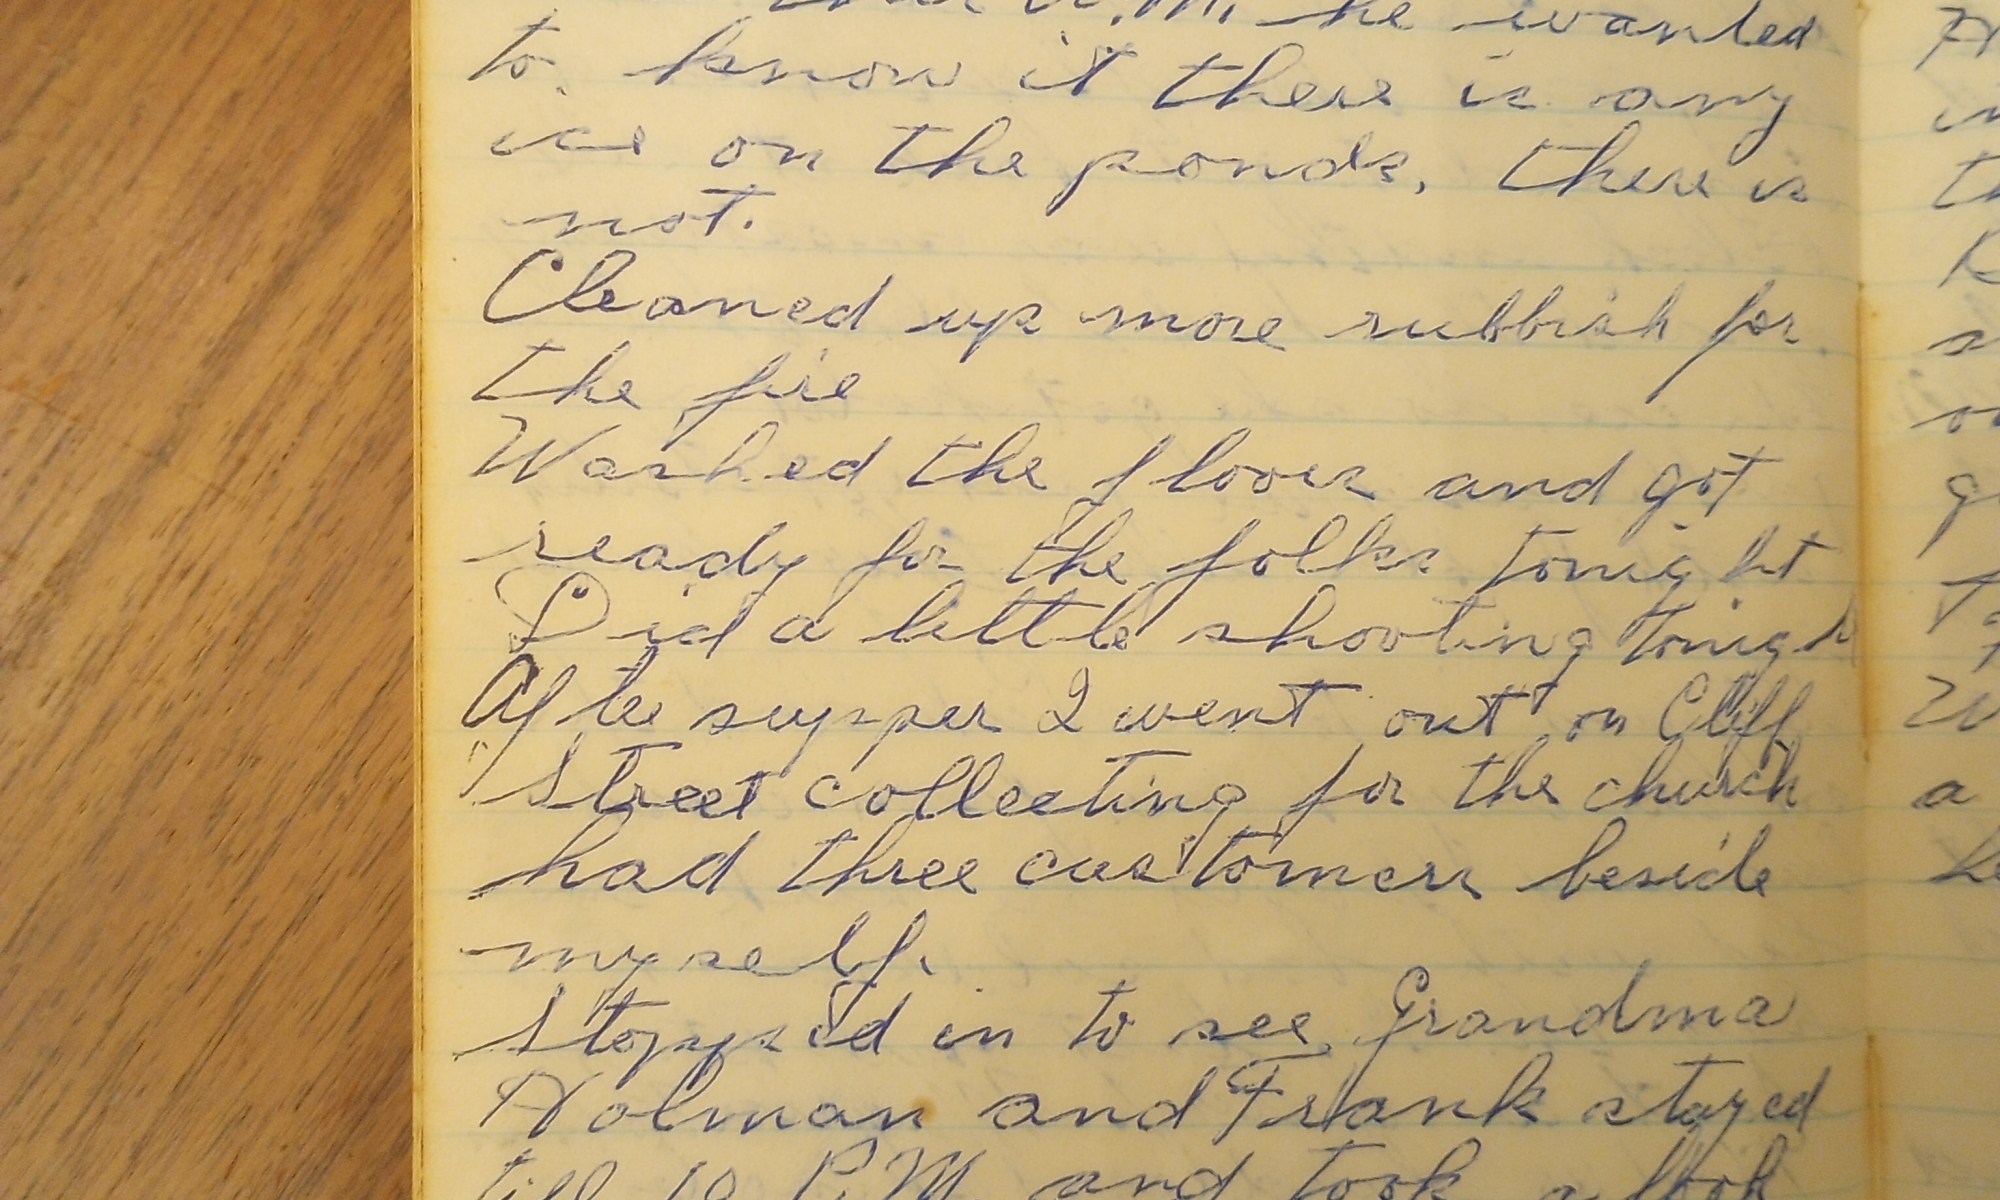 A.M. he wanted
to know it there is any
ice on the ponds, there is
not.
Cleaned up more rubbish for
the fire
Washed the floors and got
ready for the folks tonight
Did a little shooting tonigh
After supper I went out on Cliff
Street collecting for the church
had three customers beside
myself.
Stopped in to see Grandma
Holman and Frank stayed
till 10 P.M. and took a look